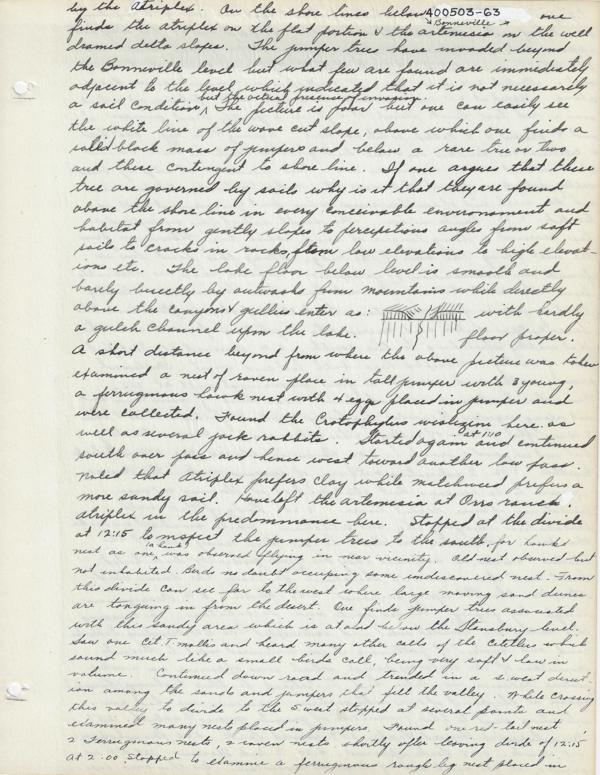 by the Atriplex. On the shore lines below A00503-63 one
"Bonneville"
finds the atriplex on the flat portion & the artemesia on the well
drained delta slopes. The juniper trees have invaded beyond
the Bonneville level but what few are found are immidiately
adjacent to the level which indicated that it is not necessarily
but the actual pressure of invasion.
a soil condition. The picture is poor but one can easily see
the white line of the wave cut slope, above which one finds a
solid block mass of junipers and below a rare tree or two
and these contingent to shore line. If one argues that these
tree are governed by soils why is it that they are found
above the shore line in every conceivable environment and
habitat from gently slopes to angles from soft
soils to cracks in rocks, from low elevations to high elevat-
ions etc. The lake floor below level is smooth and
barely by outwash from mountains while directly
above the canyons & gullies enter as: with hardly
a gulch channel upon the lake. floor proper.
A short distance beyond from where the above picture was taken
examined a nest of raven place in tall juniper with 3 young,
a ferruginous hawk nest with 4 eggs placed in juniper and
were collected. Found the Crotophytus wislizeni here as
well as several jack rabbits. Started again at 1:10 and continued
south over pass and hence west toward another low pass.
Noted that Atriplex prefers clay while matchweed prefers a
more sandy soil. Have left the artemesia at Orrs ranch.
Atriplex in the predominance here. Stopped at the divide
at 12:15 to inspect the juniper trees to the south, for hawks
(a hawk)
nest as one, was observed flying in near vicinity. Old nest observed but
not inhabited. Birds no doubt occupying some undiscovered nest. From
this divide can see far to the west where large moving sand dunes
are tonguing in from the desert. One finds juniper trees associated
with this sandy area which is at and below the Stansbury level.
Saw one Cit. T. mollis and heard many other calls of the Citellus which
sound much like a small birds call, being very soft & low in
volume. Continued down road and trended in a s.west direct-
ion among the sands and junipers that fill the valley. While crossing
this valley to divide to the S west stopped at several points and
examined many nests placed in junipers. Found one red-tail nest,
2 Ferruginous nests, 2 raven nests shortly after leaving divide of 12:15
At 2:00 stopped to examine a ferruginous rough leg nest placed in